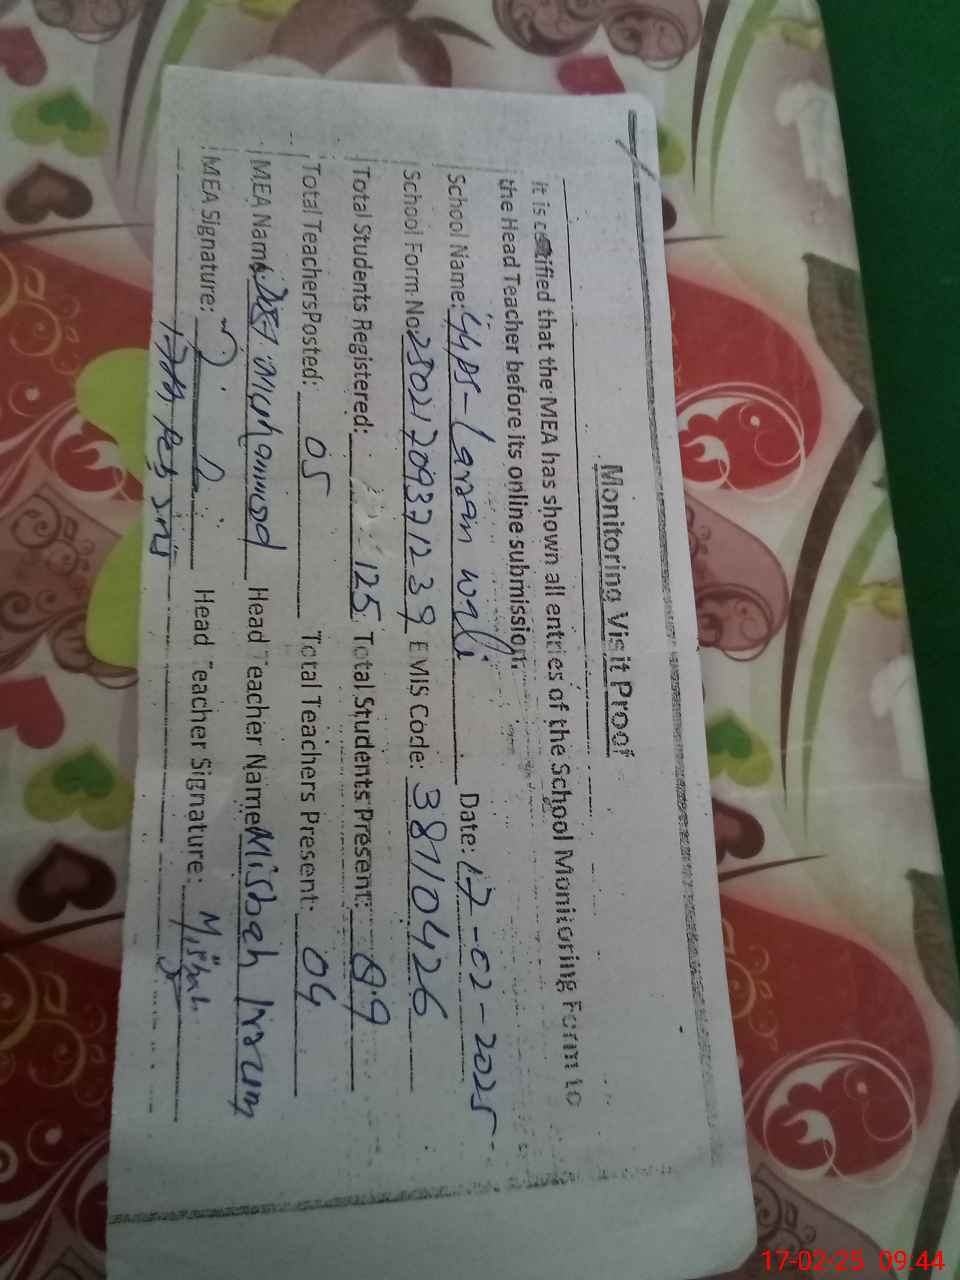 Monitoring Visit Proof
It is certified that the MEA has shown all entries of the School Monitoring Form to
the Head Teacher before its online submission.
School Name: GGPS- wali Date: 17-02-2025
School Form No: EMIS Code: 38710426
Total Students Registered: 125 Total Students Present: 89
Total Teachers Posted: 05 Total Teachers Present: 04
MEA Name: Muhammad Head Teacher Name: Misbah Irum
MEA Signature: Head Teacher Signature: Misbah
17-02-25 09:44